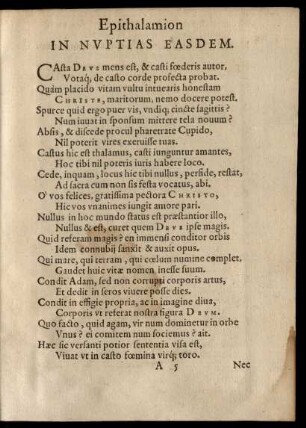 Epithalamion
IN NVPTIAS EASDEM.
CAsta DEVS mens est, & casti fœderis autor,
Votaq́, de casto corde profecta probat.
Quàm placido vitam vultu intuearis honestam
CHRISTE, maritorum, nemo docere potest.
Spurce quid ergo puer vis, vndiq; cincte sagittis?
Num iuuat in sponsum mittere tela nouum?
Absis, & discede procul pharetrate Cupido,
Nil poterit vires exeruisse tuas.
Castus hic est thalamus, casti iunguntur amantes,
Hoc tibi nil poteris iuris habere loco.
Cede, inquam, locus hic tibi nullus, perfide, restat,
Ad sacra cum non sis festa vocatus, abi.
O' vos felices, gratissima pectora CHRISTO,
Hic vos vnanimes iungit amore pari.
Nullus in hoc mundo status est præstantior illo,
Nullus & est, curet quem DEVS ipse magis.
Quid referam magis? en immensi conditor orbis
Idem connubij sanxit & auxit opus.
Qui mare, qui terram, qui cœlum numine complet,
Gaudet huic vitæ nomen inesse suum.
Condit Adam, sed non corrupti corporis artus,
Et dedit in seros viuere posse dies.
Condit in effigie propria, ac in imagine diua,
Corporis vt referat nostra figura DEVM.
Quo facto, quid agam, vir num dominetur in orbe
Vnus? ei comitem num sociemus? ait.
Hæc sic versanti potior sententia visa est,
Viuat vt in casto fœmina virq́; toro.
A 5 Nec